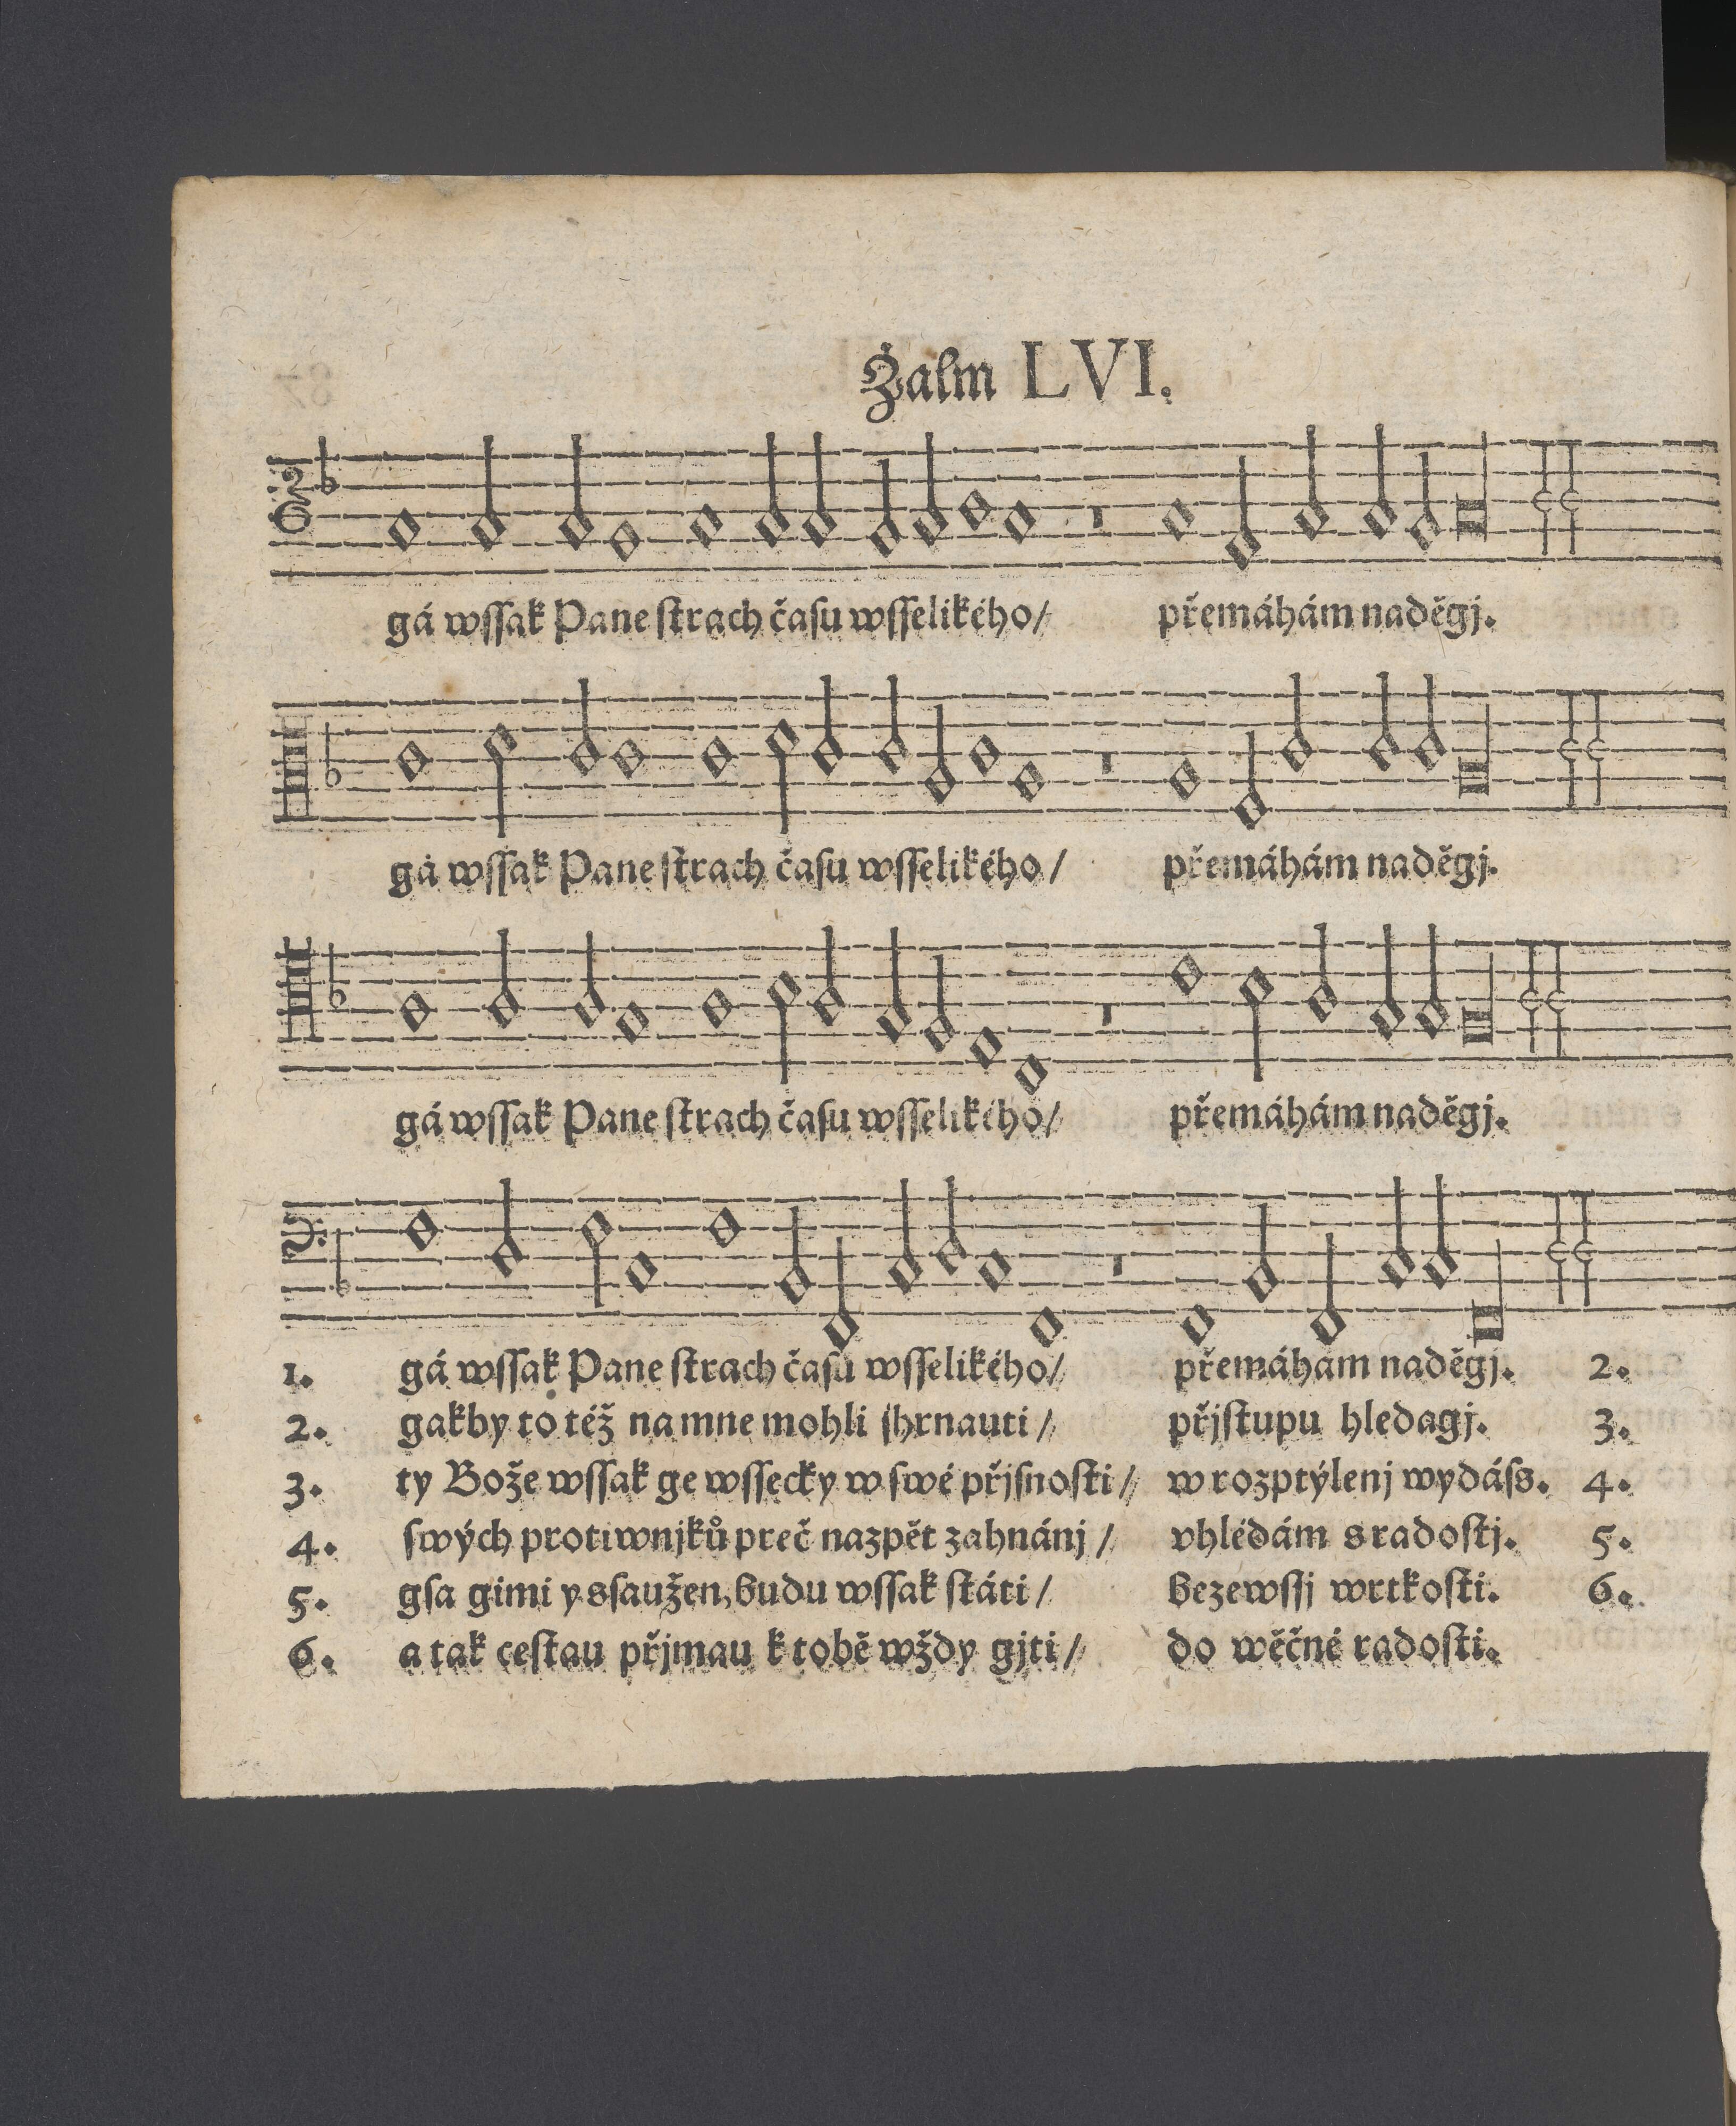 Žalm LVI.
gá wſſak Pane ſtrach čaſu wſſelikého/ přemáhám naděgj.
gá wſſak Pane ſtrach čaſu wſſelikého/ přemáhám naděgj.
gá wſſak Pane ſtrach čaſu wſſelikého/ přemáhám naděgj.
1. gá wſſak Pane ſtrach čaſu wſſelikého/ přemáham naděgj. 2.
2. gakby to též na mne mohli ſhrnauti/ přjſtupu hledagj. 3.
3. ty Bože wſſak ge wſſecky w ſwé přjſnoſti/ w rozptýlenj wydáſs. 4.
4. ſwých protiwnjků preč nazpět zahnánj/ vhlédám s radoſtj. 5.
5. gſa gimi y sſaužen, budu wſſak ſtáti/ bezewſſj wrtkoſti. 6.
6. a tak ceſtau přjmau k tobě wždy gjti/ do wěčné radoſti.